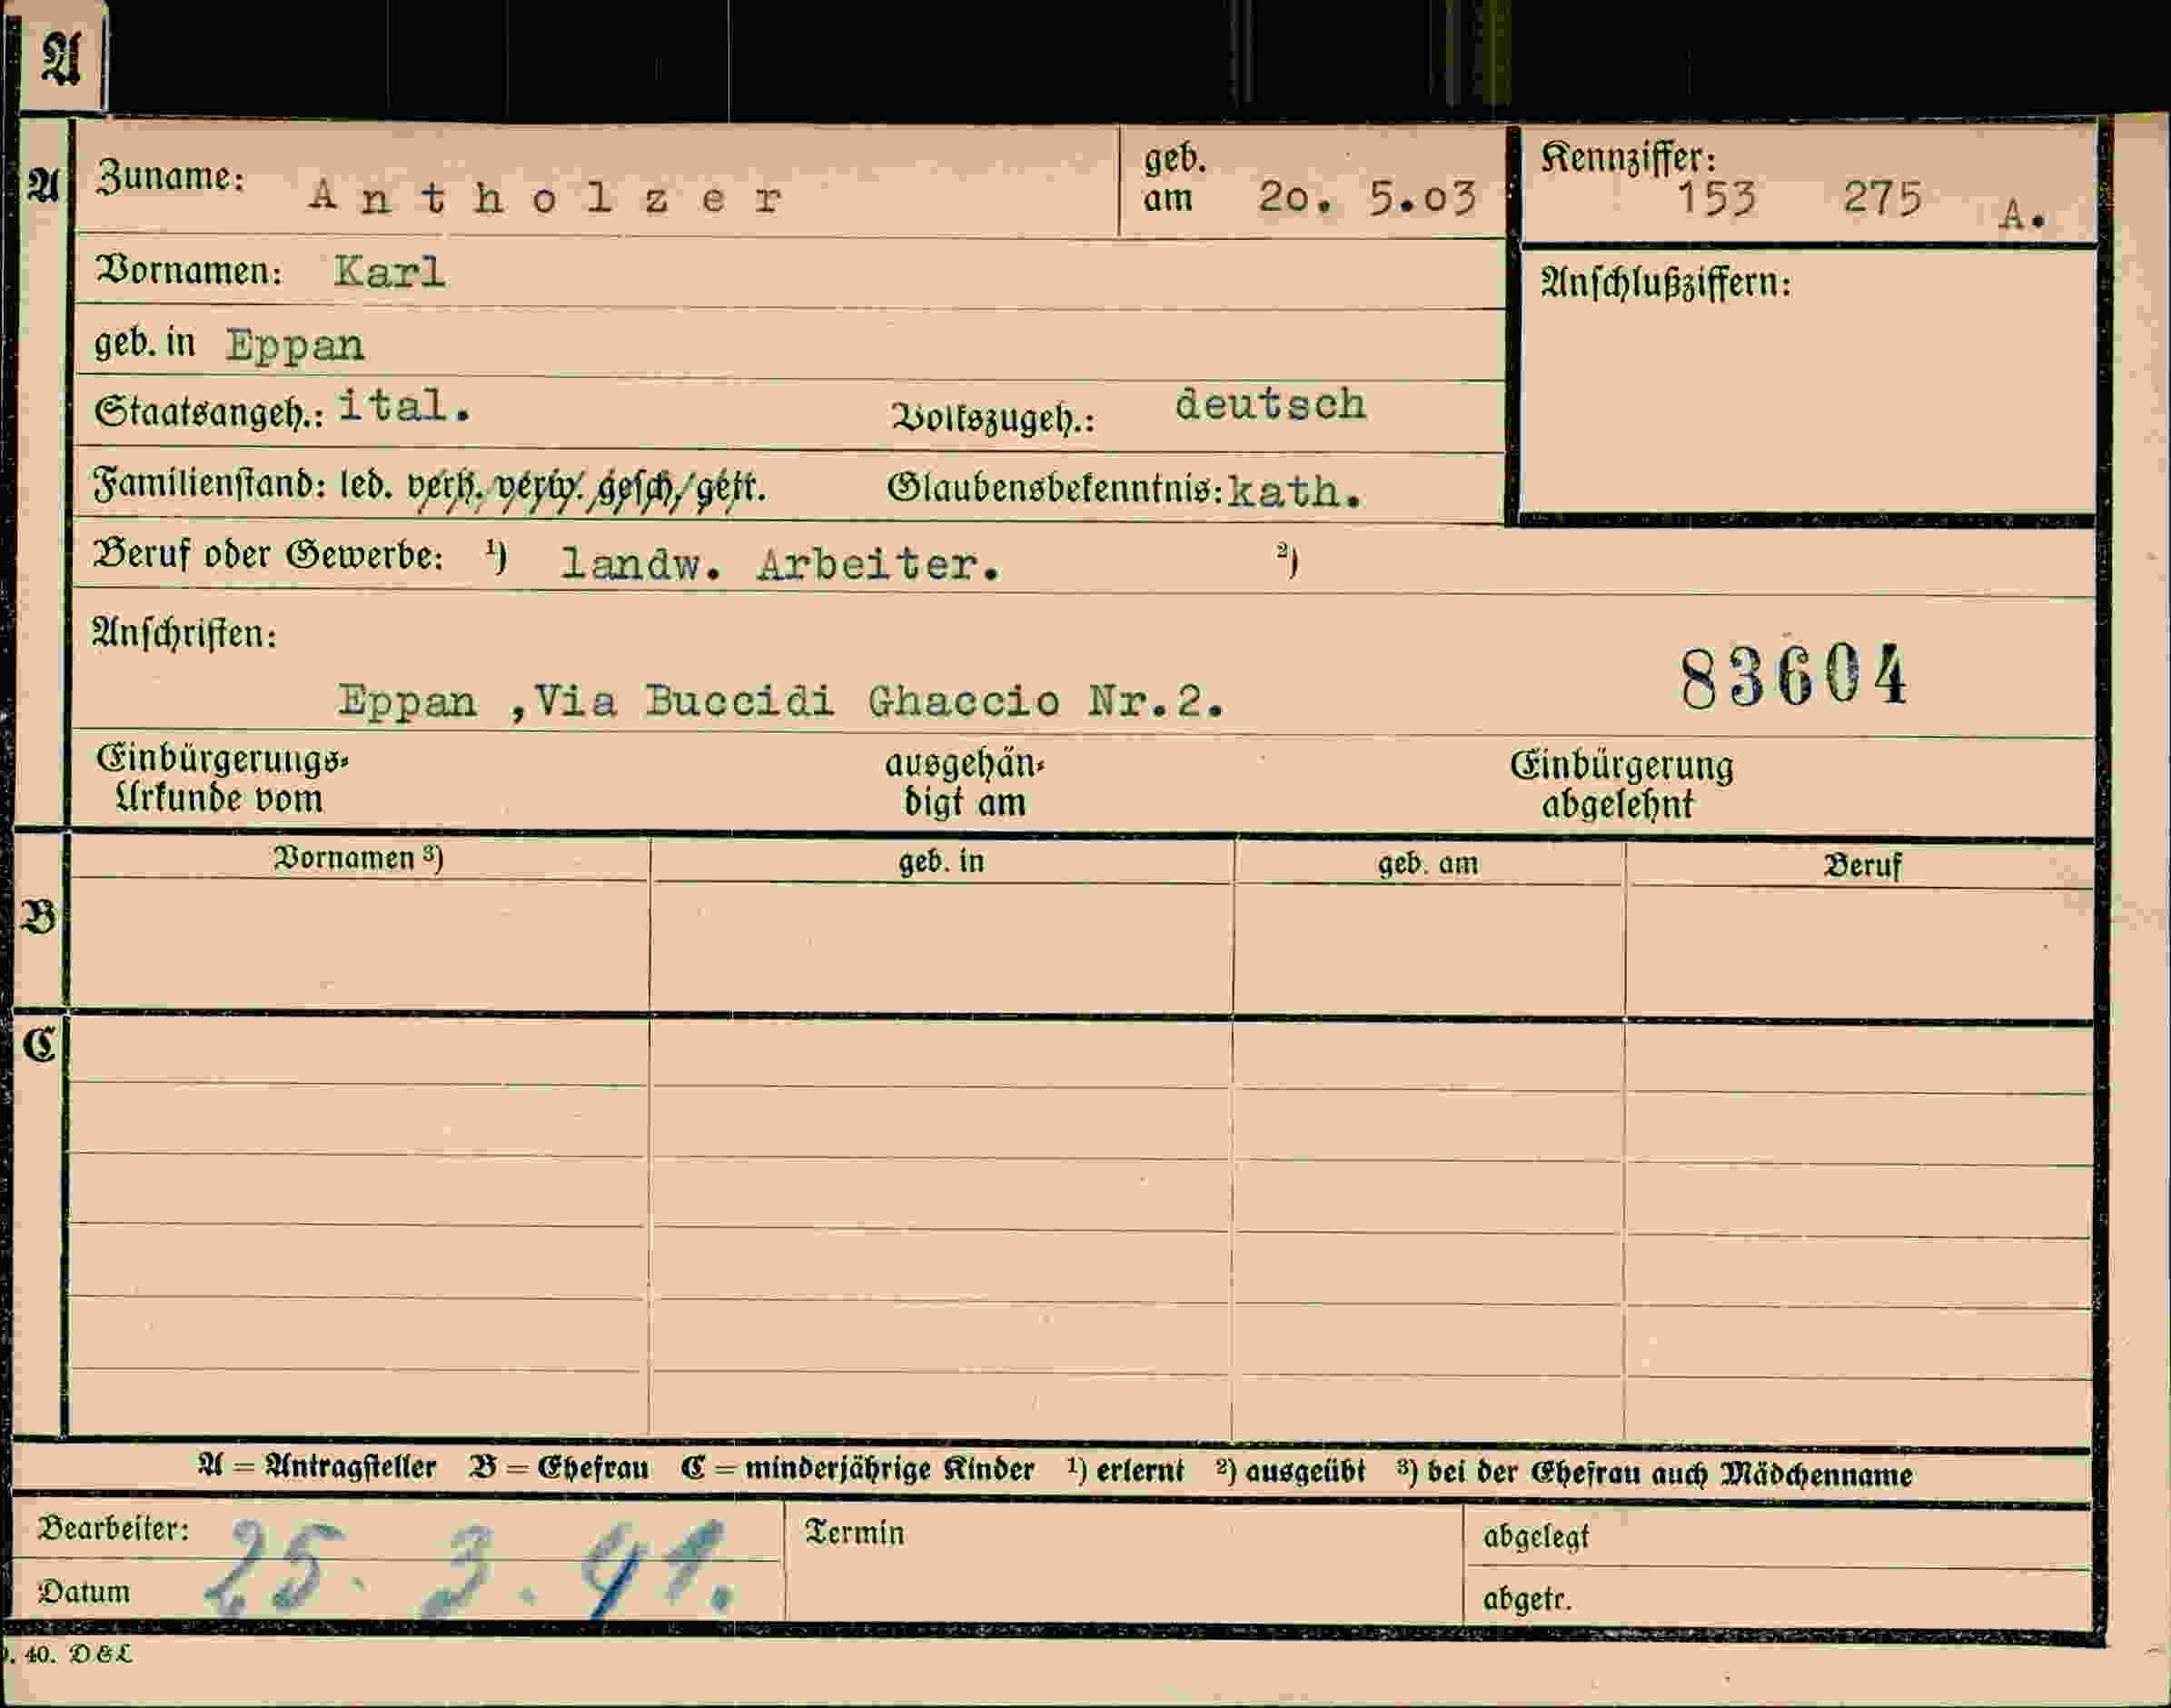 A
A Zuname: Antholzer geb. am 20. 5.03 Kennziffer: 153 275 A.
Vornamen: Karl Anschlußziffern:
geb. in Eppan
Staatsangeh.: ital. Volkszugeh.: deutsch
Familienstand: led. verh. verw. gesch. getr. Glaubensbekenntnis: kath.
Beruf oder Gewerbe: ¹) landw. Arbeiter. ²)
Anschriften:
83604
Eppan ,Via Buccidi Ghaccio Nr.2.
Einbürgerungs- ausgehän- Einbürgerung
Urkunde vom digt am abgelehnt
Vornamen ³) geb. in geb. am Beruf
B
C
A = Antragsteller B = Ehefrau C = minderjährige Kinder ¹) erlernt ²) ausgeübt ³) bei der Ehefrau auch Mädchenname
Bearbeiter: 25. 3. 41. Termin abgelegt
Datum abgetr.
. 40. D&L